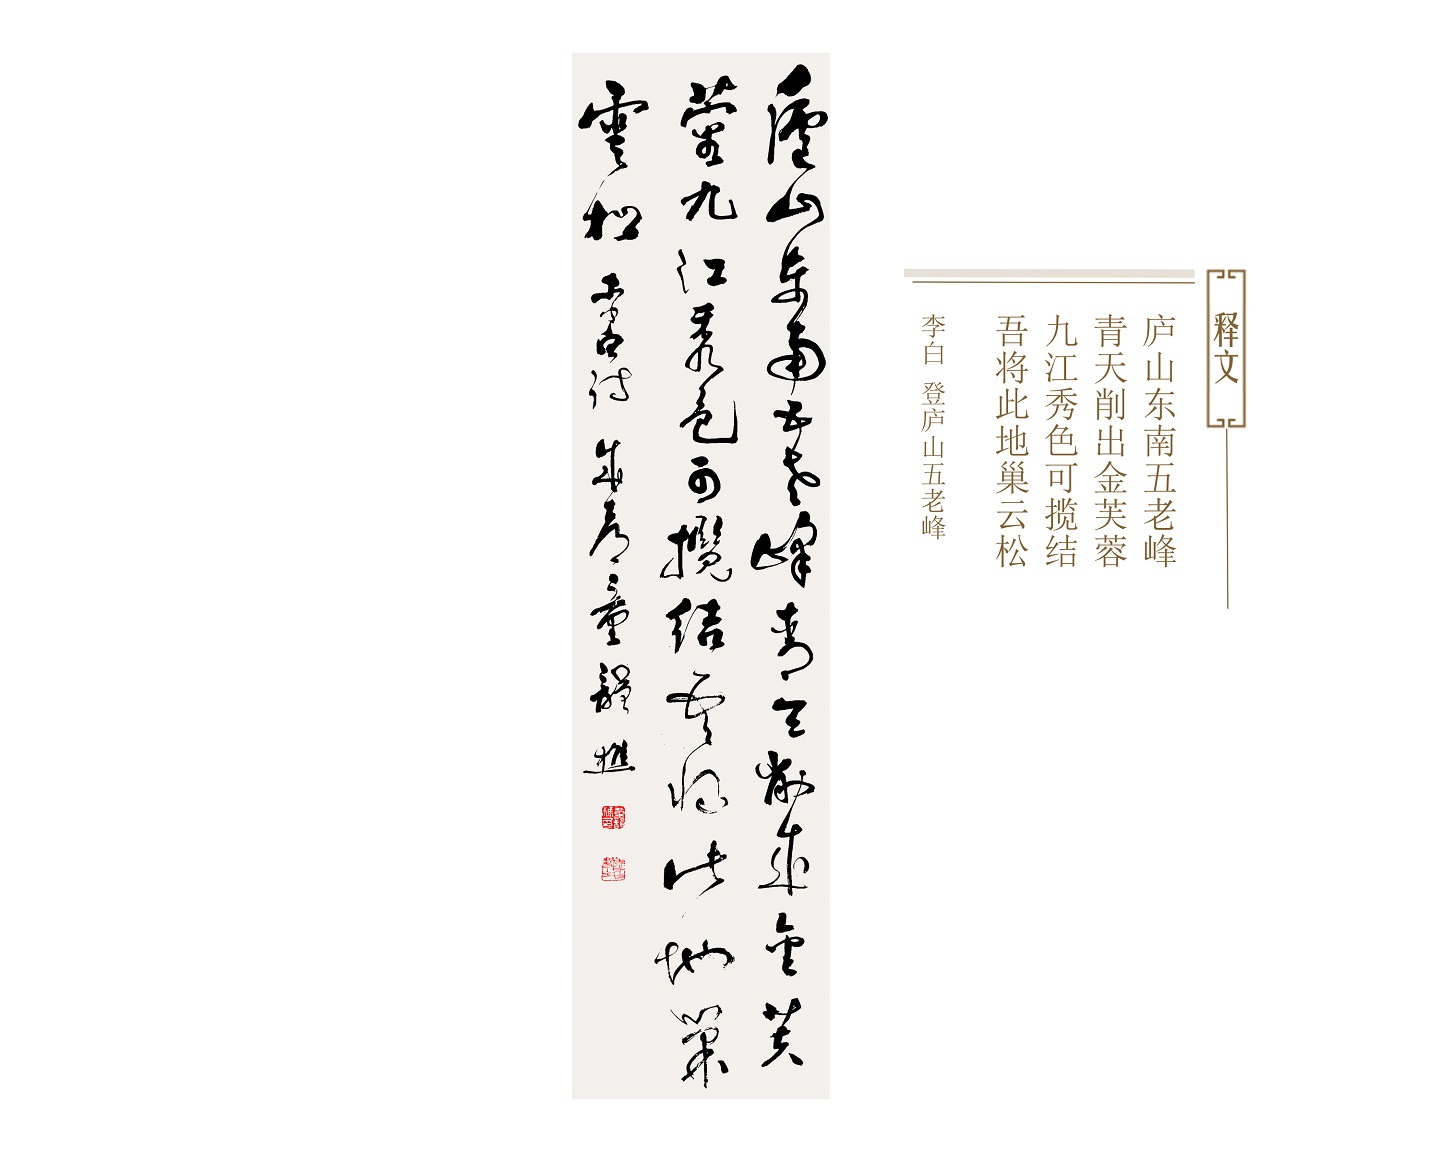 释文
庐山东南五老峰
青天削出金芙蓉
九江秀色可揽结
吾将此地巢云松
李白 登庐山五老峰
廬山东南五老峰青天削成金芙
蓉九江秀色可攬結吾将此地巢
雲松 李白诗 成都童韻樵